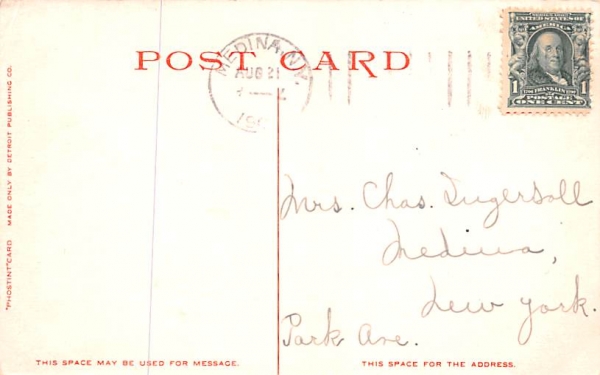 POST CARD
MEDINA, N.Y.
AUG 21
190
SERIES 1902
UNITED STATES OF
AMERICA
1 FRANKLIN 1
POSTAGE
ONE CENT
Mrs. Chas. Ingersoll
Medina,
New York.
Park Ave.
"PHOSTINT" CARD. MADE ONLY BY DETROIT PUBLISHING CO.
THIS SPACE MAY BE USED FOR MESSAGE.
THIS SPACE FOR THE ADDRESS.